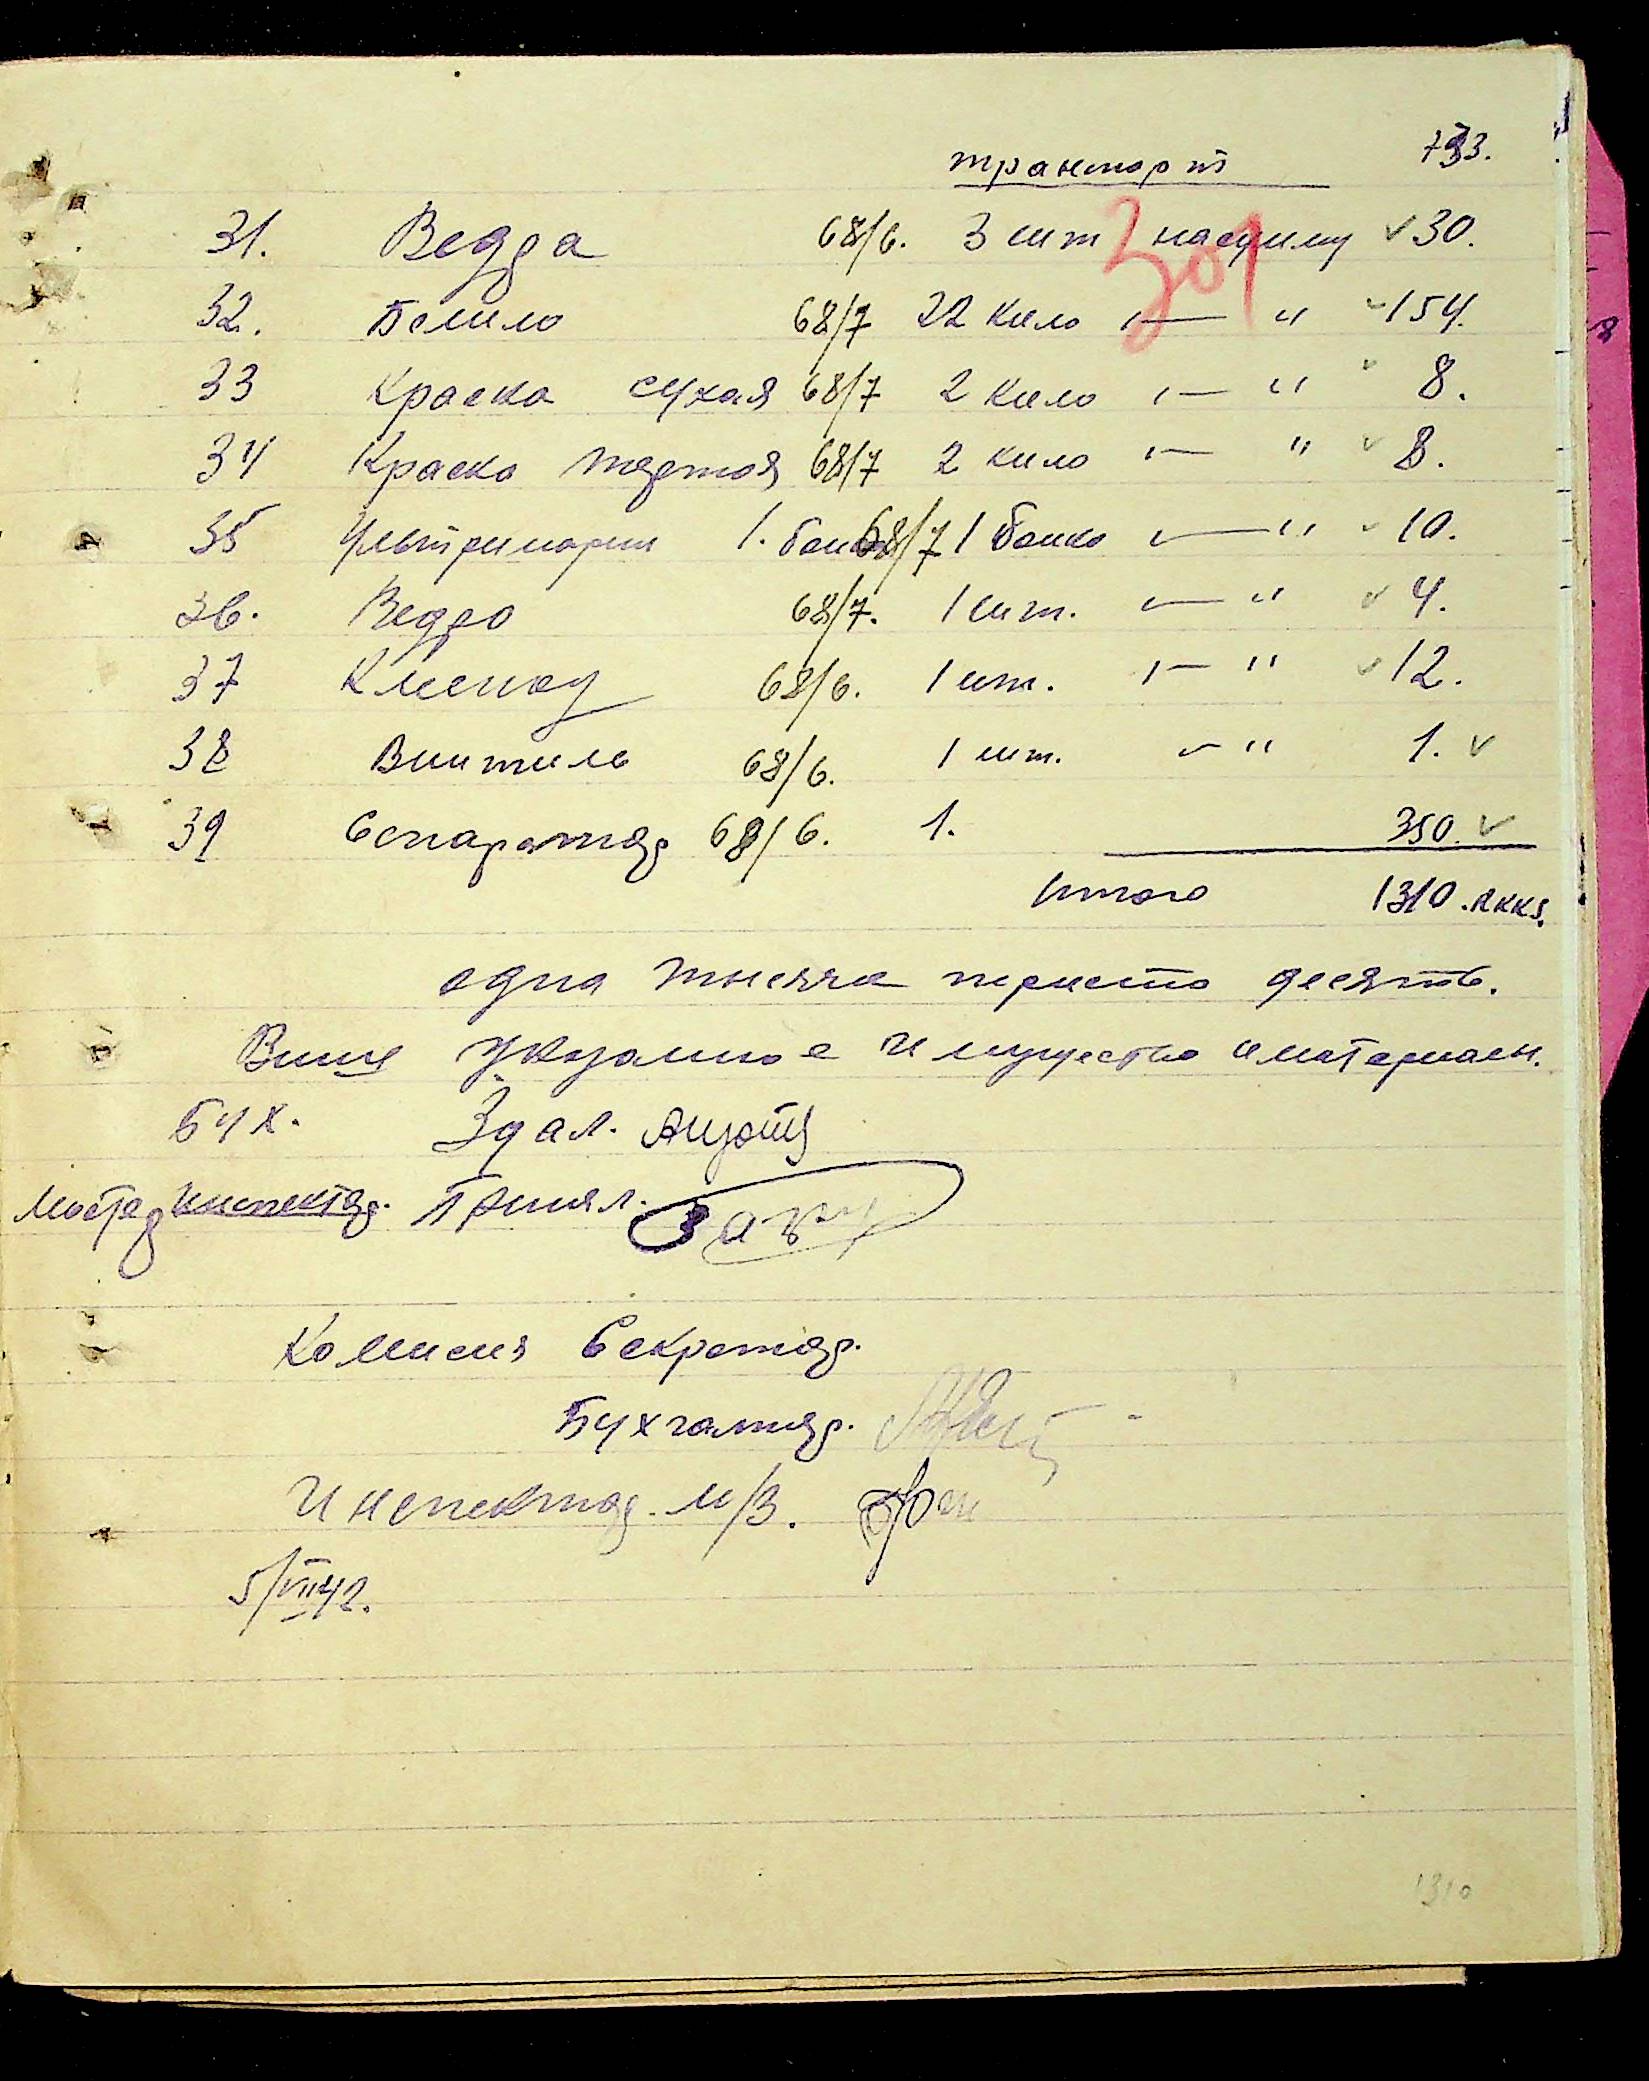 транспорт 733.
301
31. Ведра 68/6. 3 шт на суму √ 30.
32. Белило 68/7 22 кило —— " √ 154.
33 Краска сухая 68/7 2 кило — " 8.
34 Краска тертоя 68/7 2 кило — " √ 8.
35 Ультримарин 1. банк 68/7 1 банка —— " √ 10.
36. Ведро 68/7. 1 шт. — " √ 4.
37 68/6. 1 шт. — " √ 12.
38 Винтиль 68/6. 1 шт. — " 1. √
39 Сепаратор 68/6. 1. 350. √
Итого 1310.
одна тысяча триста десять.
Више указаное имущество и материалы.
Бух. Здал.
инспектор. Принял.
Комисия Секретар.
Бухгалтер.
Инспектор. М/З.
5/VIII 42.
1310